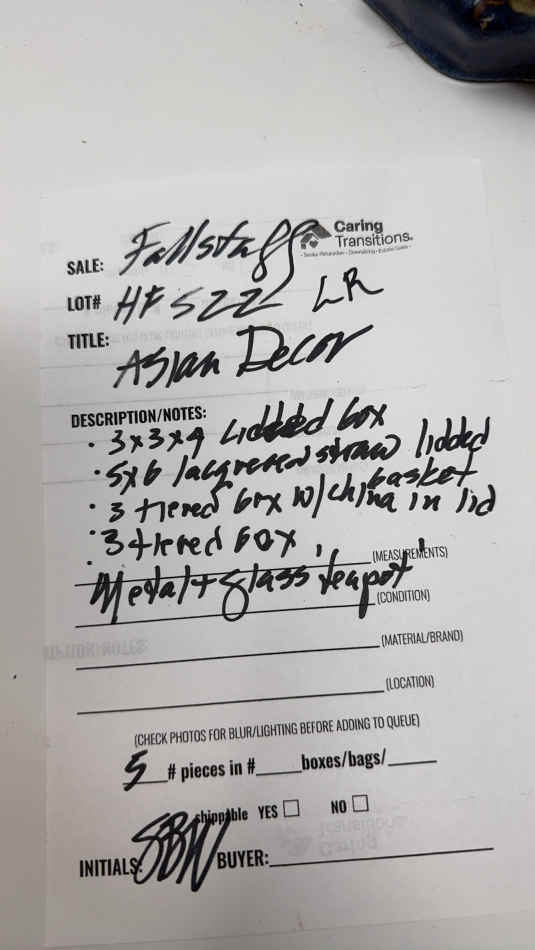 Caring
Transitions.
SALE: Fallstaff
LOT# HFS22 LR
TITLE:
Asian Decor
DESCRIPTION/NOTES:
• 3x3x9 Lidded box
• 5x6 lacquered straw lidded
basket
• 3 tiered box w/china in lid
• 3 tiered box
(MEASUREMENTS)
• Metal + glass "teapot"
(CONDITION)
(MATERIAL/BRAND)
(LOCATION)
(CHECK PHOTOS FOR BLUR/LIGHTING BEFORE ADDING TO QUEUE)
5 # pieces in #_____boxes/bags/_____
shippable YES □ NO □
INITIALS: SBW BUYER: